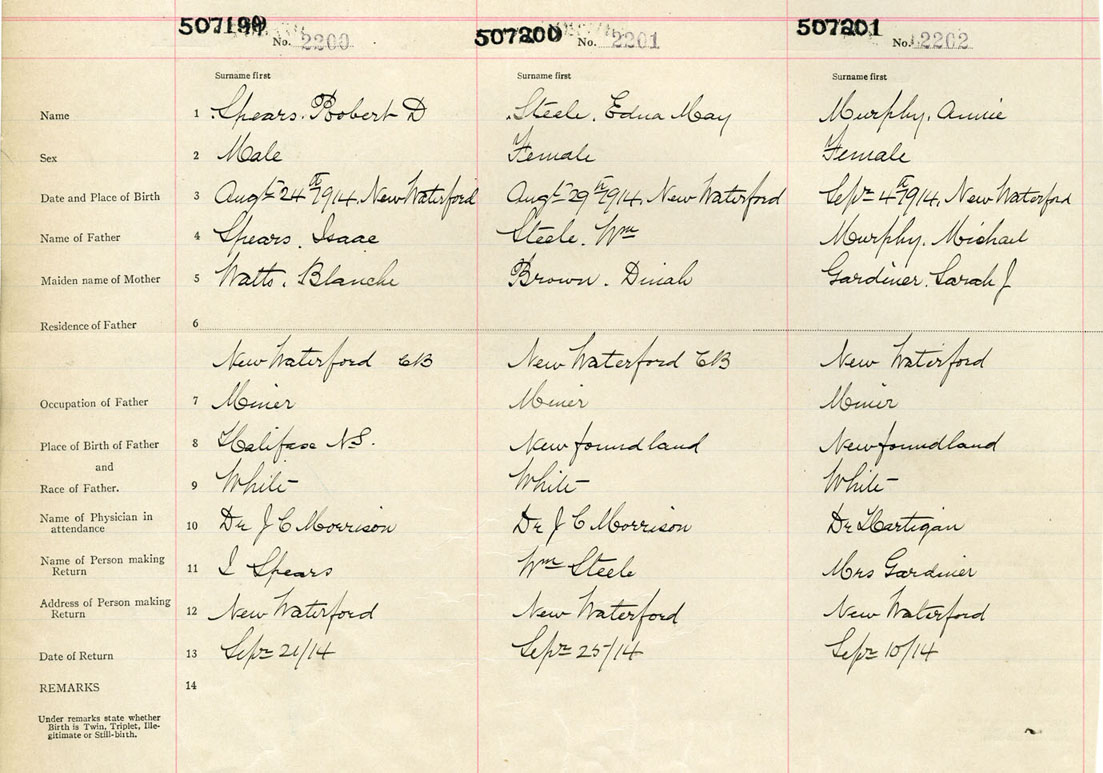 507199 No. 2200 507200 No. 2201 507201 No. 2202
Surname first Surname first Surname first
Name 1 Spears. Robert D Steele. Edna May Murphy. Annie
Sex 2 Male Female Female
Date and Place of Birth 3 Augt 24th 1914, New Waterford Augt 29th 1914, New Waterford Sepr 4th 1914, New Waterford
Name of Father 4 Spears. Isaac Steele. Wm Murphy. Michael
Maiden name of Mother 5 Watts. Blanche Brown. Dinah Gardiner. Sarah J
Residence of Father 6
New Waterford CB New Waterford CB New Waterford
Occupation of Father 7 Miner Miner Miner
Place of Birth of Father 8 Halifax N.S. Newfoundland Newfoundland
and
Race of Father. 9 White White White
Name of Physician in
attendance 10 Dr J C Morrison Dr J C Morrison Dr Hartigan
Name of Person making
Return 11 I Spears Wm Steele Mrs Gardiner
Address of Person making
Return 12 New Waterford New Waterford New Waterford
Date of Return 13 Sepr 21/14 Sepr 25/14 Sepr 10/14
REMARKS 14
Under remarks state whether
Birth is Twin, Triplet, Ille-
gitimate or Still-birth.